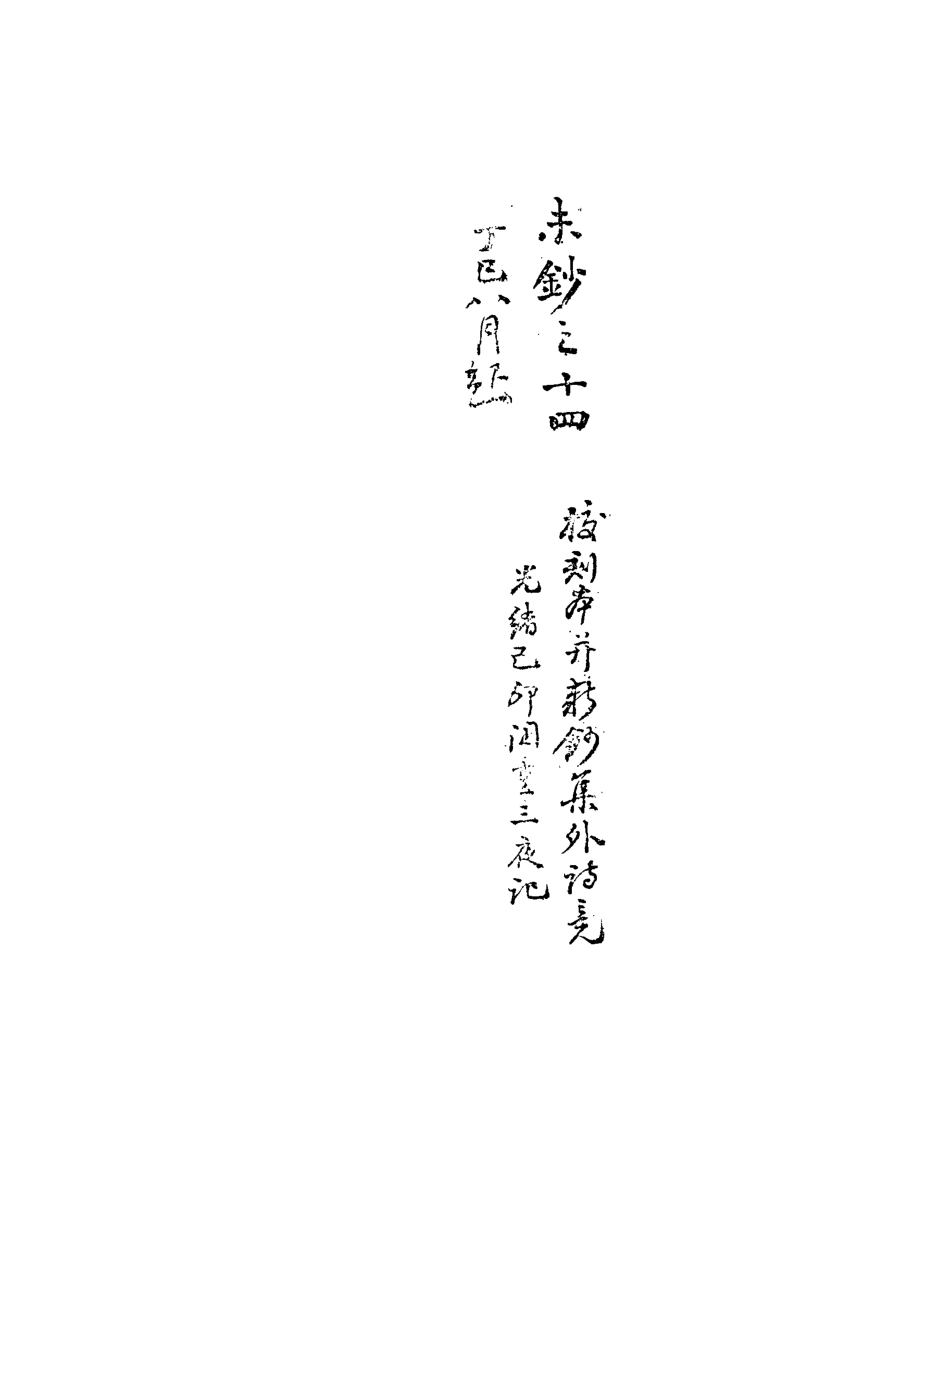 未鈔之十四
丁巳八月
校刻本并新鈔集外詩竟
光緒己卯閏重三夜記